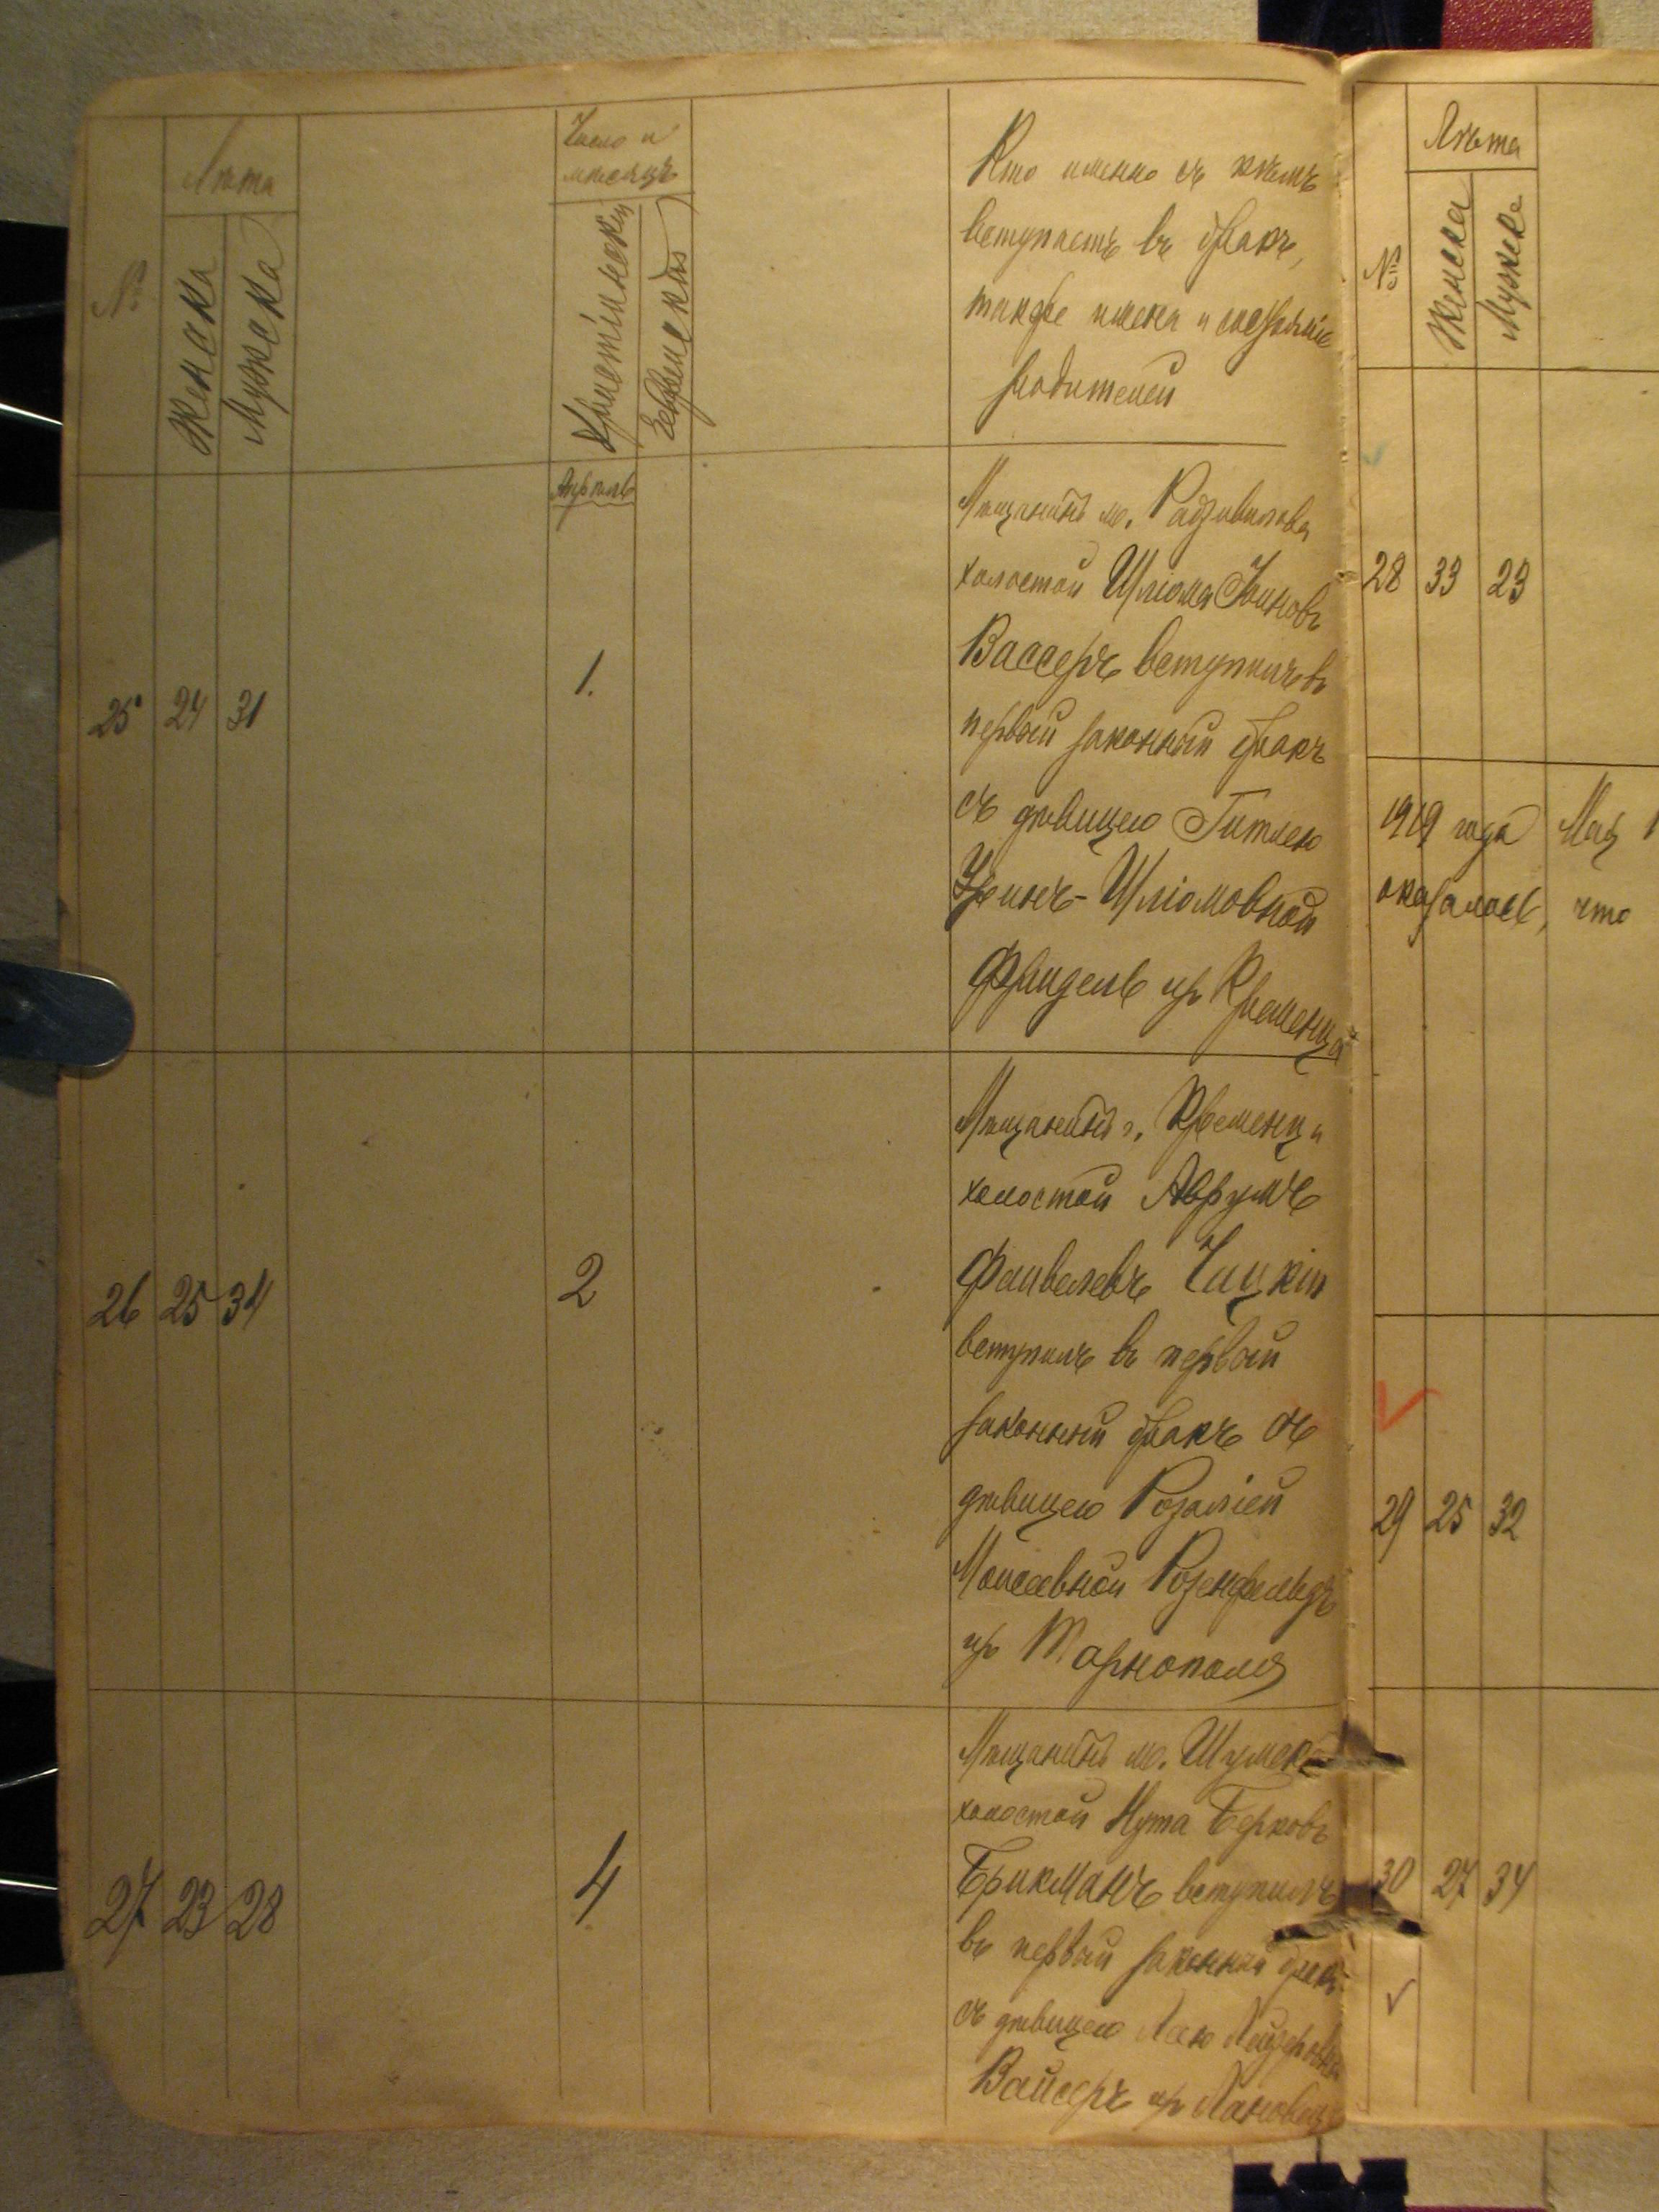 №
Лѣта
Женска
Мужска
Число и
мѣсяцъ
Христіянский
Еврейский
Кто именно съ кѣмъ
вступаетъ въ бракъ,
также имена и состояніе
родителей
Апрѣль
25 24 31
1.
Мѣщанинъ м. Радзивилова
холостой Шліома
Вассеръ вступилъ въ
первый законный бракъ
съ дѣвицею Гитлею
Шліомовной
Фридель из Кременца
26 25 34
2
Мѣщанинъ г. Кременца
холостой Аврумъ
Файвелевъ Чацкій
вступилъ въ первый
законный бракъ съ
дѣвицею Розаліей
Моисеевной Розенфельдъ
из Тарнополя
27 23 28
4
Мѣщанинъ м. Шумска
холостой Нута Берковъ
Брикманъ вступилъ
въ первый законный бракъ
съ дѣвицею Леею Лейзеровной
Вайсеръ из Лановецъ
№
Лѣта
Женска
Мужска
28 33 23
1919 года Мая 1
оказалось, что
29 25 32
30 27 34